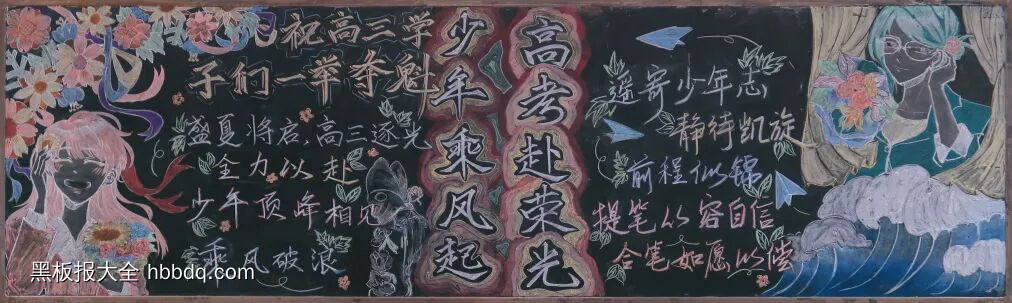 祝高三学
子们一举夺魁
盛夏将启,高三逐光
全力以赴
少年顶峰相见
乘风破浪
少年乘风起
高考赴荣光
遥寄少年志
静待凯旋
前程似锦
提笔从容自信
合笔如愿以偿
黑板报大全 hbbdq.com